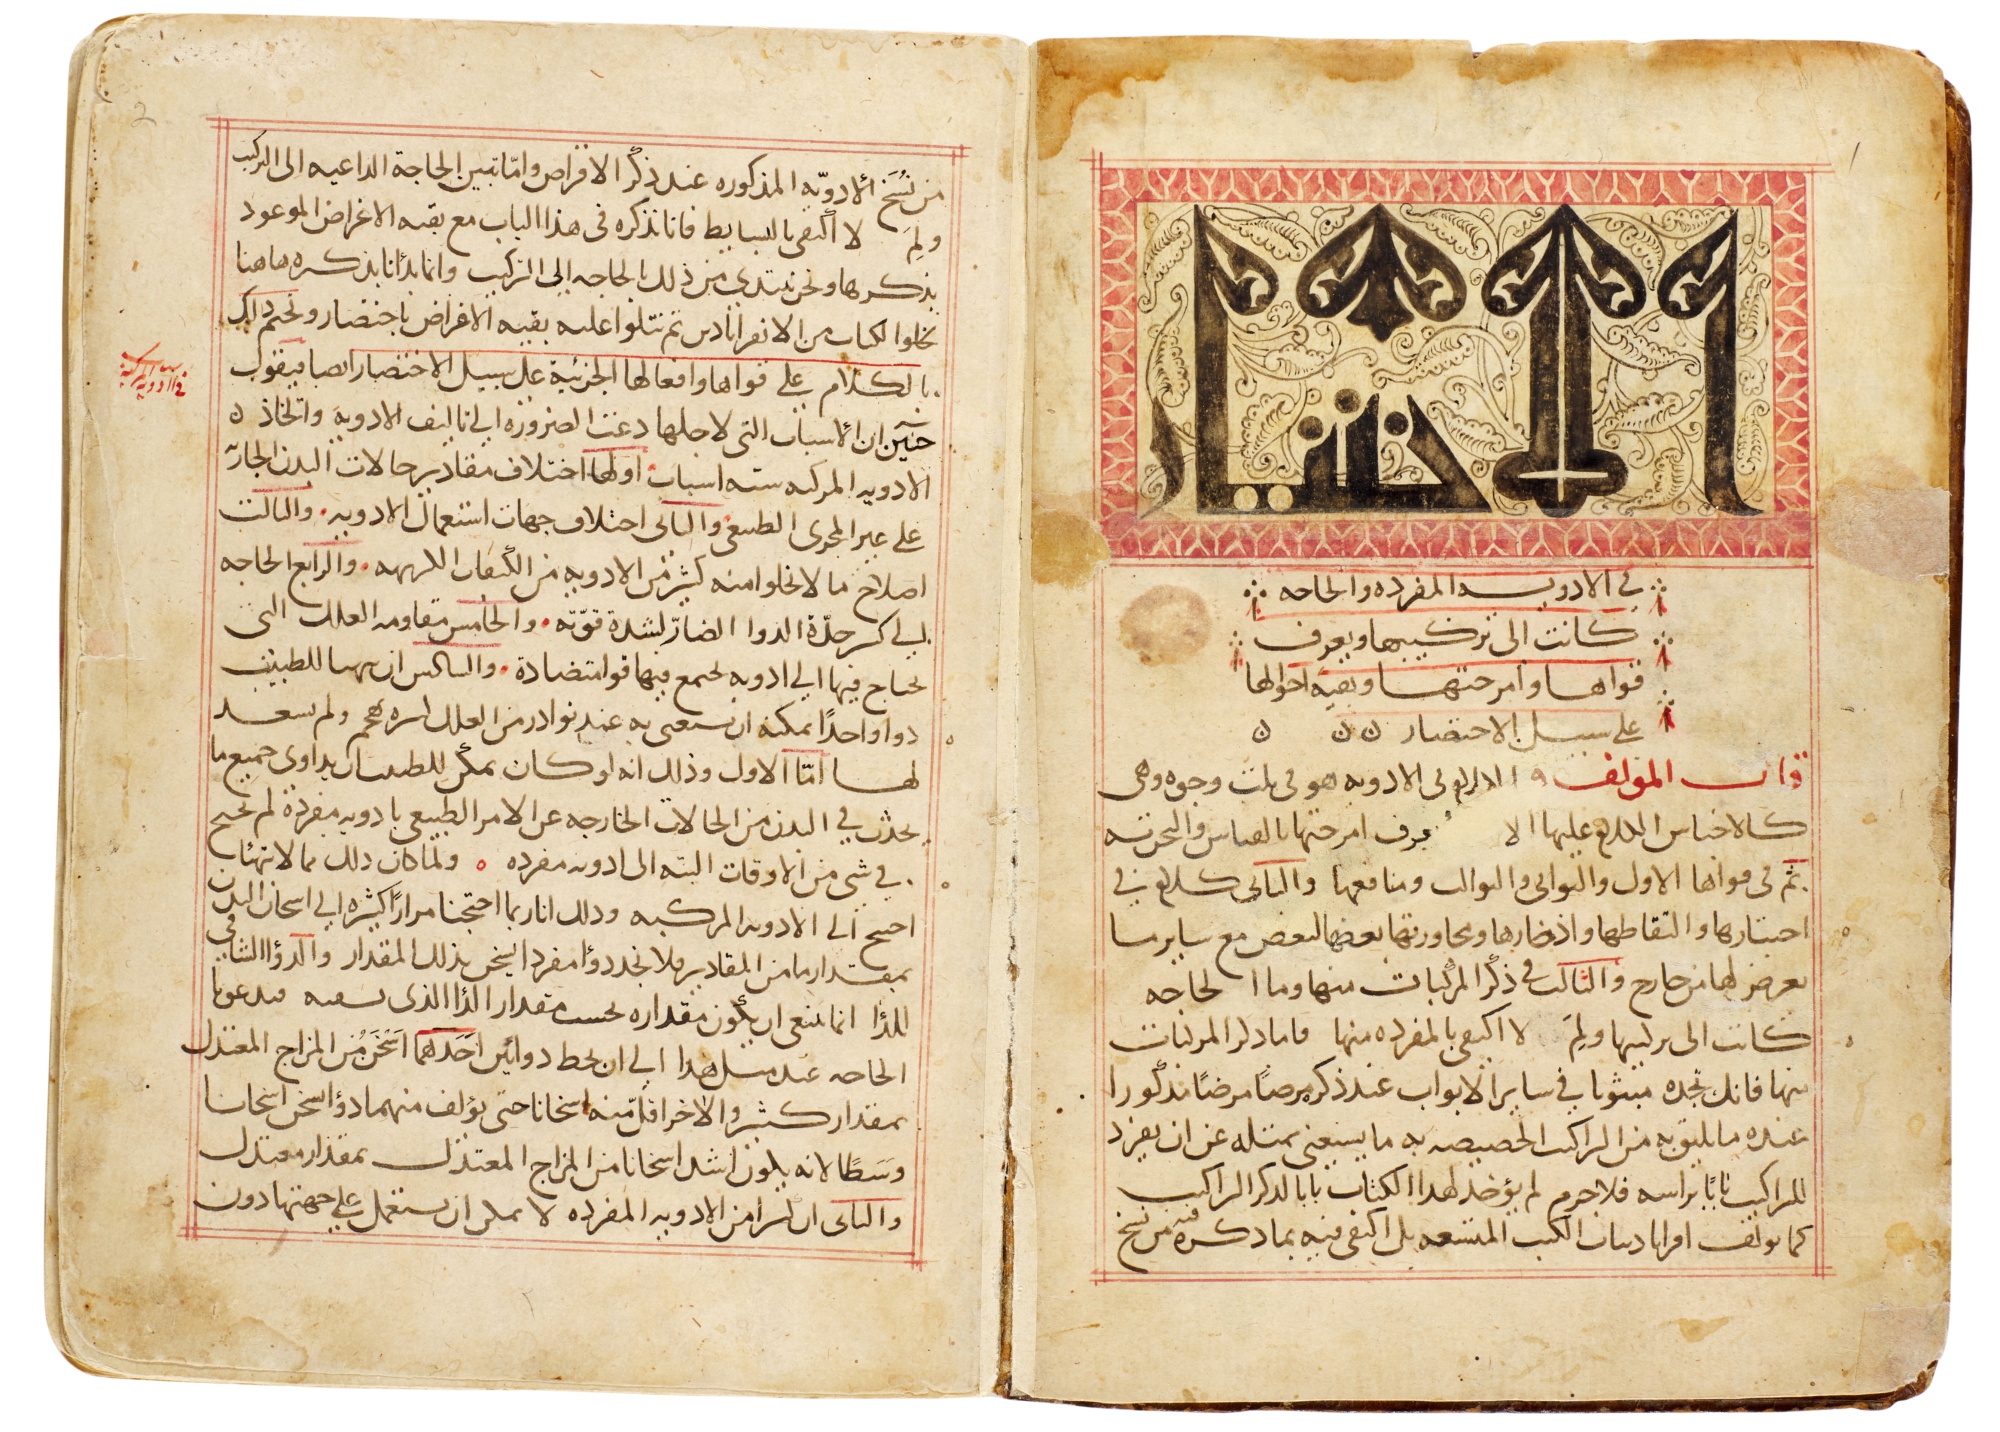 في الادويه المفرده والحاجه
كانت الى تركيبها ويعرف
قواها وامزجتها وبقيه احوالها
على سبيل الاختصار
قال المولف الكلام في الادويه هو في ثلث وجوه وهي
كالاجناس الكلام عليها الا يعرف امزجتها بالقياس والتجربه
ثم في قواها الاول والثواني والثوالث ومنافعها والثاني كلام في
اختيارها والتقاطها وادخارها ومجاورتها بعضها لبعض مع ساير ما
يعرض لها من خارج والثالث في ذكر المركبات منها وما الحاجه
كانت الى تركيبها ولم لا اكتفي بالمفرده منها فاما ذكر المركبات
منها فانك تجده مبثوثا في ساير الابواب عند ذكر مرضا مرضا مذكورا
عنده ما يليق به من التراكيب الخصيصه به ما يستغنى بمثله عن ان يفرد
للتراكيب بابا براسه فلا جرم لم يوخذ لهذا الكتاب بابا لذكر التراكيب
كما يولف اقراباذينات الكتب المتسعه بل اكتفي فيه بما ذكره فيه من نسخ
من نسخ الادويه المذكوره عند ذكر الاقراص واما تبيين الحاجة الداعيه الى التركيب
ولم لا اكتفي بالبسايط فانا نذكره في هذا الباب مع بقيه الاغراض الموعود
بذكرها ونحن نبتدي من ذلك بالحاجه الى التركيب وانما بدأنا بذكره هاهنا
لخلو الكتاب من الاقراباذين ثم نتلوا عليه بقيه الاغراض باختصار ونختم ذلك
بالكلام على قواها وافعالها الجزئية على سبيل الاختصار ايضا فيقول
حنين ان الاسباب التي لاجلها دعت الضروره الى تاليف الادوية واتخاذ
الادويه المركبه سته اسباب اولها اختلاف مقادير حالات البدن الجاريه
على غير المجرى الطبيعي والثاني اختلاف جهات استعمال الادويه والثالث
اصلاح ما لا يخلوا منه كثير من الادويه من الكيفيات الكريهه والرابع الحاجه
الى كسر حدة الدوا الضار لشدة قوته والخامس مقاومه العلل التي
يحتاج فيها الى ادويه يجتمع فيها قوا متضادة والسادس ان يهيا للطبيب
دوا واحدا يمكنه ان يستغني به عند نوادر من العلل اذا هجم ولم يستعد
لها اما الاول وذلك انه لو كان يمكن للطبيب ان يداوى جميع ما
يحدث في البدن من الحالات الخارجه عن الامر الطبيعي بادويه مفردة لم نحتج
في شي من الاوقات البته الى ادويه مفرده ولما كان ذلك مما لا يتهيا
احتيج الى الادويه المركبه وذلك انا ربما احتجنا مرارا كثيره الى اسخان البدن
بمقدار ما من المقادير فلا نجد دوا مفردا يسخن بذلك المقدار والدوا الشافي
للدا انما ينبغي ان يكون مقداره بحسب مقدار الدا الذي يشفيه فيدعونا
الحاجه عند مثل هذا الى ان نخلط دوائين احدهما اسخن من المزاج المعتدل
بمقدار كثير والاخر اقل منه اسخانا حتى يؤلف منهما دوا يسخن اسخانا
وسطا لانه يكون اشد اسخانا من المزاج المعتدل بمقدار معتدل
والثاني ان كثيرا من الادويه المفرده لا يمكن ان يستعمل على جهتها دون